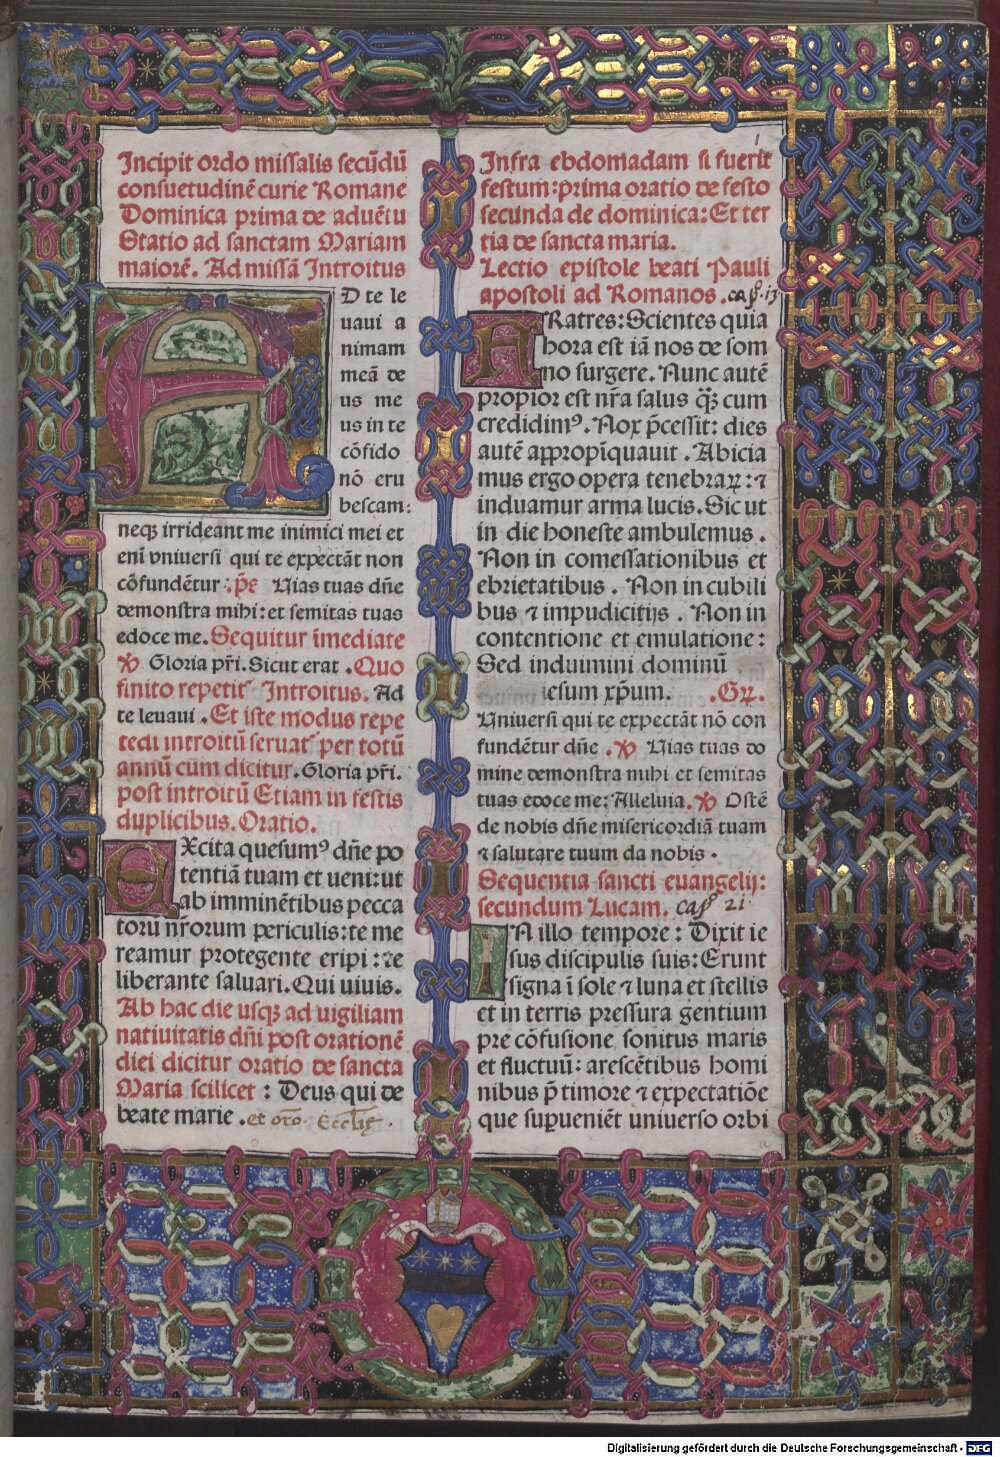 Incipit ordo missalis secūdū
consuetudinē curie Romane
Dominica prima de aduētu
Statio ad sanctam Mariam
maiorē. Ad missā Introitus
AD te le
uaui a
nimam
meā de
us me
us in te
cōfido
nō eru
bescam:
neqꝫ irrideant me inimici mei et
enī vniuersi qui te expectāt non
cōfundētur : p̄s Uias tuas dn̄e
demonstra mihi: et semitas tuas
edoce me. Sequitur īmediate
℣ Gloria pr̄i. Sicut erat . Quo
finito repetit᷑ Introitus. Ad
te leuaui . Et iste modus repe
tedi introitū seruat᷑ per totū
annū cum dicitur. Gloria pr̄i.
post introitū Etiam in festis
duplicibus. Oratio.
EXcita quesumꝰ dn̄e po
tentiā tuam et ueni: ut
ab imminētibus pecca
torū nr̄orum periculis: te me
reamur protegente eripi: te
liberante saluari. Qui uiuis.
Ab hac die usqꝫ ad uigiliam
natiuitatis dn̄i post orationē
diei dicitur oratio de sancta
Maria scilicet : Deus qui de
beate marie . et oro. Eccl̄ie .
1
Infra ebdomadam si fuerit
festum: prima oratio de festo
secunda de dominica: Et ter
tia de sancta maria.
Lectio epistole beati Pauli
apostoli ad Romanos . cap. 13
FRatres: Scientes quia
hora est iā nos de som
no surgere. Nunc autē
propior est nr̄a salus qꝫ̄ cum
credidimꝰ. Nox p̄cessit: dies
autē appropīquauit . Abicia
mus ergo opera tenebraꝝ: ⁊
induamur arma lucis. Sic ut
in die honeste ambulemus .
Non in comessationibus et
ebrietatibus . Non in cubili
bus ⁊ impudicitijs . Non in
contentione et emulatione :
Sed induimini dominū
iesum xp̄um. . Gꝝ.
Uniuersi qui te expectāt nō con
fundētur dn̄e . ℣ Uias tuas do
mine demonstra mihi et semitas
tuas edoce me: Alleluia. ℣ Ostē
de nobis dn̄e misericordiā tuam
⁊ salutare tuum da nobis .
Sequentia sancti euangelij:
secundum Lucam. cap. 21
IN illo tempore : Dixit ie
sus discipulis suis: Erunt
signa ī sole ⁊ luna et stellis
et in terris pressura gentium
pre cōfusione sonitus maris
et fluctuū: arescētibus homi
nibus p̄ timore ⁊ expectatiōe
que suꝑueniēt uniuerso orbi
a
Digitalisierung gefördert durch die Deutsche Forschungsgemeinschaft - DFG